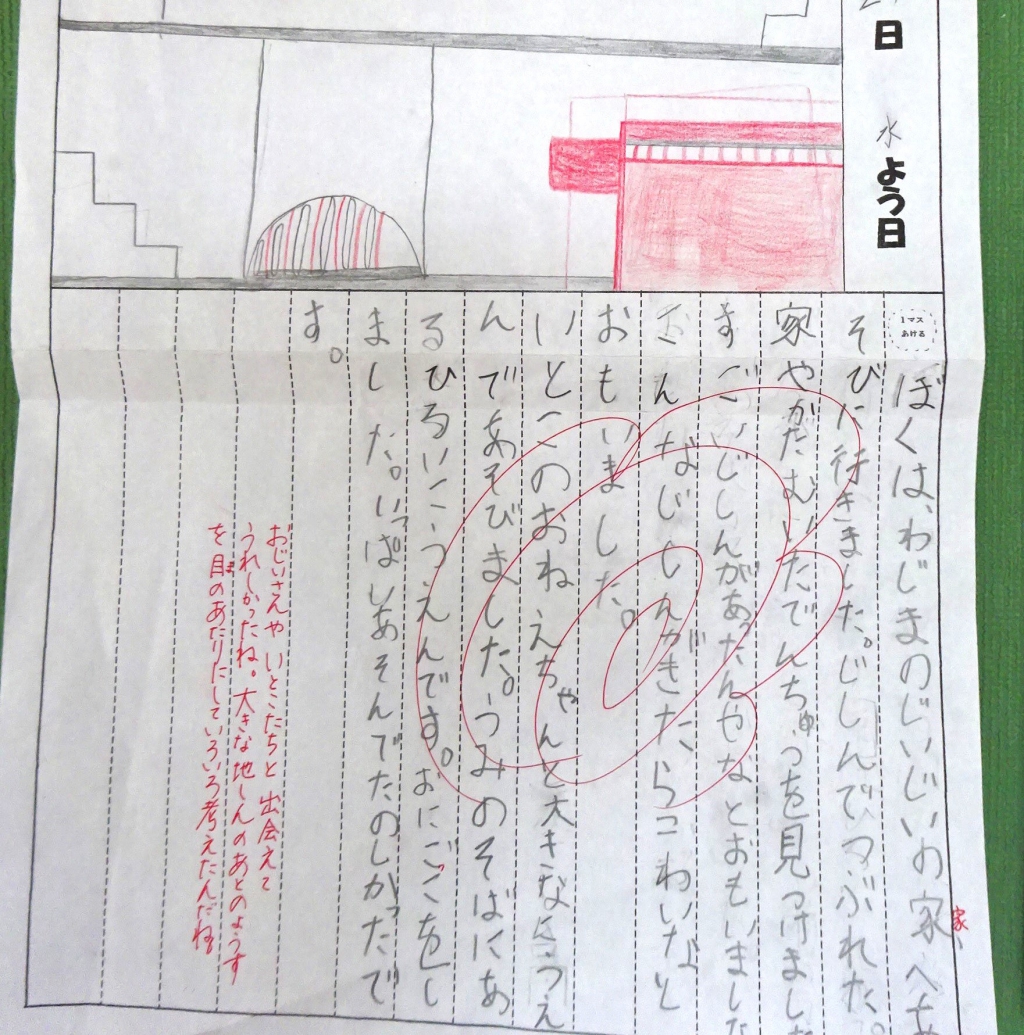 日
水よう日
1マス
あける
ぼくは、わじまのじいじいの家へ
家
そびに行きました。じしんでつぶれた
家やかたむいたでんちゅうを見つけまし
すごいじしんがあったんやなとおもいまし
こんなじしんがきたらこわいなと
おもいました。
いとこのおねえちゃんと大きなこうえ
んであそびました。うみのそばにあ
るひろいこうえんです。おにごこをし
ました。いっぱいあそんでたのしかったで
す。
おじいさんやいとこたちと出会えて
うれしかったね。大きな地しんのあとのようす
を目のあたりにしていろいろ考えたんだね。